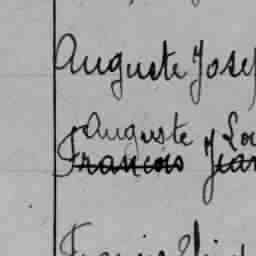 Auguste Jose
Auguste Lou
Francois Jean